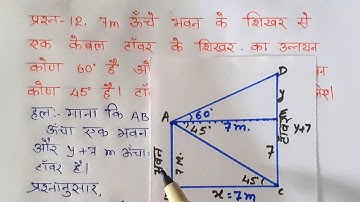 प्रश्न-12. 7m ऊँचे भवन के शिखर से
एक केबल टॉवर के शिखर का उन्नयन
कोण 60° है औ
कोण 45° है।
हल:- माना कि AB
ऊँचा एक भवन
और y+7 m ऊँचा
टॉवर है।
प्रश्नानुसार,
D
y
A
60°
45°
7m.
E
y+7
टॉवर
7
भवन
7 m.
45°
C
x=7m